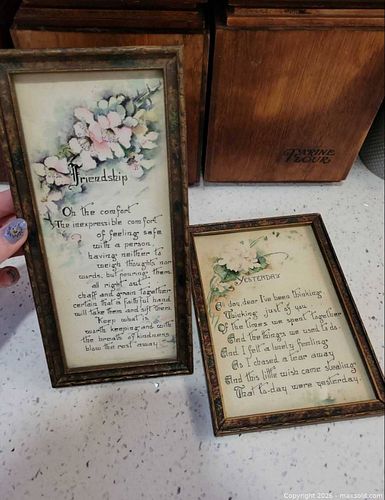 Friendship
Oh the comfort
The inexpressible comfort
of feeling safe
with a person,
having neither to
weigh thoughts nor
words, but pouring them
all right out
chaff and grain together
certain that a faithful hand
will take them and sift them
Keep what is
worth keeping and with
the breath of kindness
blow the rest away.
FARINE
FLOUR
YESTERDAY
O day dear I've been thinking
Thinking just of you
Of the times we spent together
And the things we used to do.
And I felt a lonely feeling
As I chased a tear away
And this little wish came stealing
That to-day were yesterday.
Copyright 2026 - maxsold.com